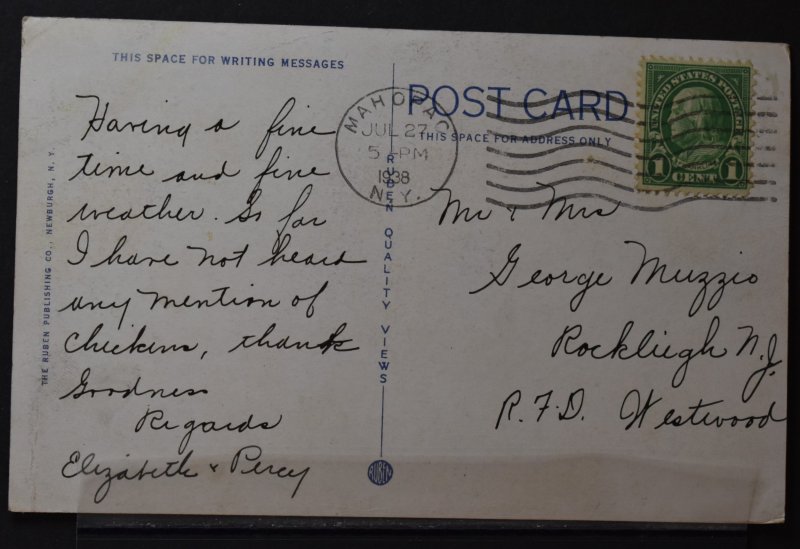 THIS SPACE FOR WRITING MESSAGES
Having a fine
time and fine
weather. So far
I have not heard
any mention of
chickens, thank
Goodness
Regards
Elizabeth & Percy
THE RUBEN PUBLISHING CO., NEWBURGH, N. Y.
RUBEN QUALITY VIEWS
RUBEN
POST CARD
THIS SPACE FOR ADDRESS ONLY
MAHOPAC
JUL 27
5 PM
1938
N.Y.
UNITED STATES POSTAGE
1 CENT 1
Mr & Mrs
George Muzzio
Rockliegh N.J.
R.F.D. Westwood